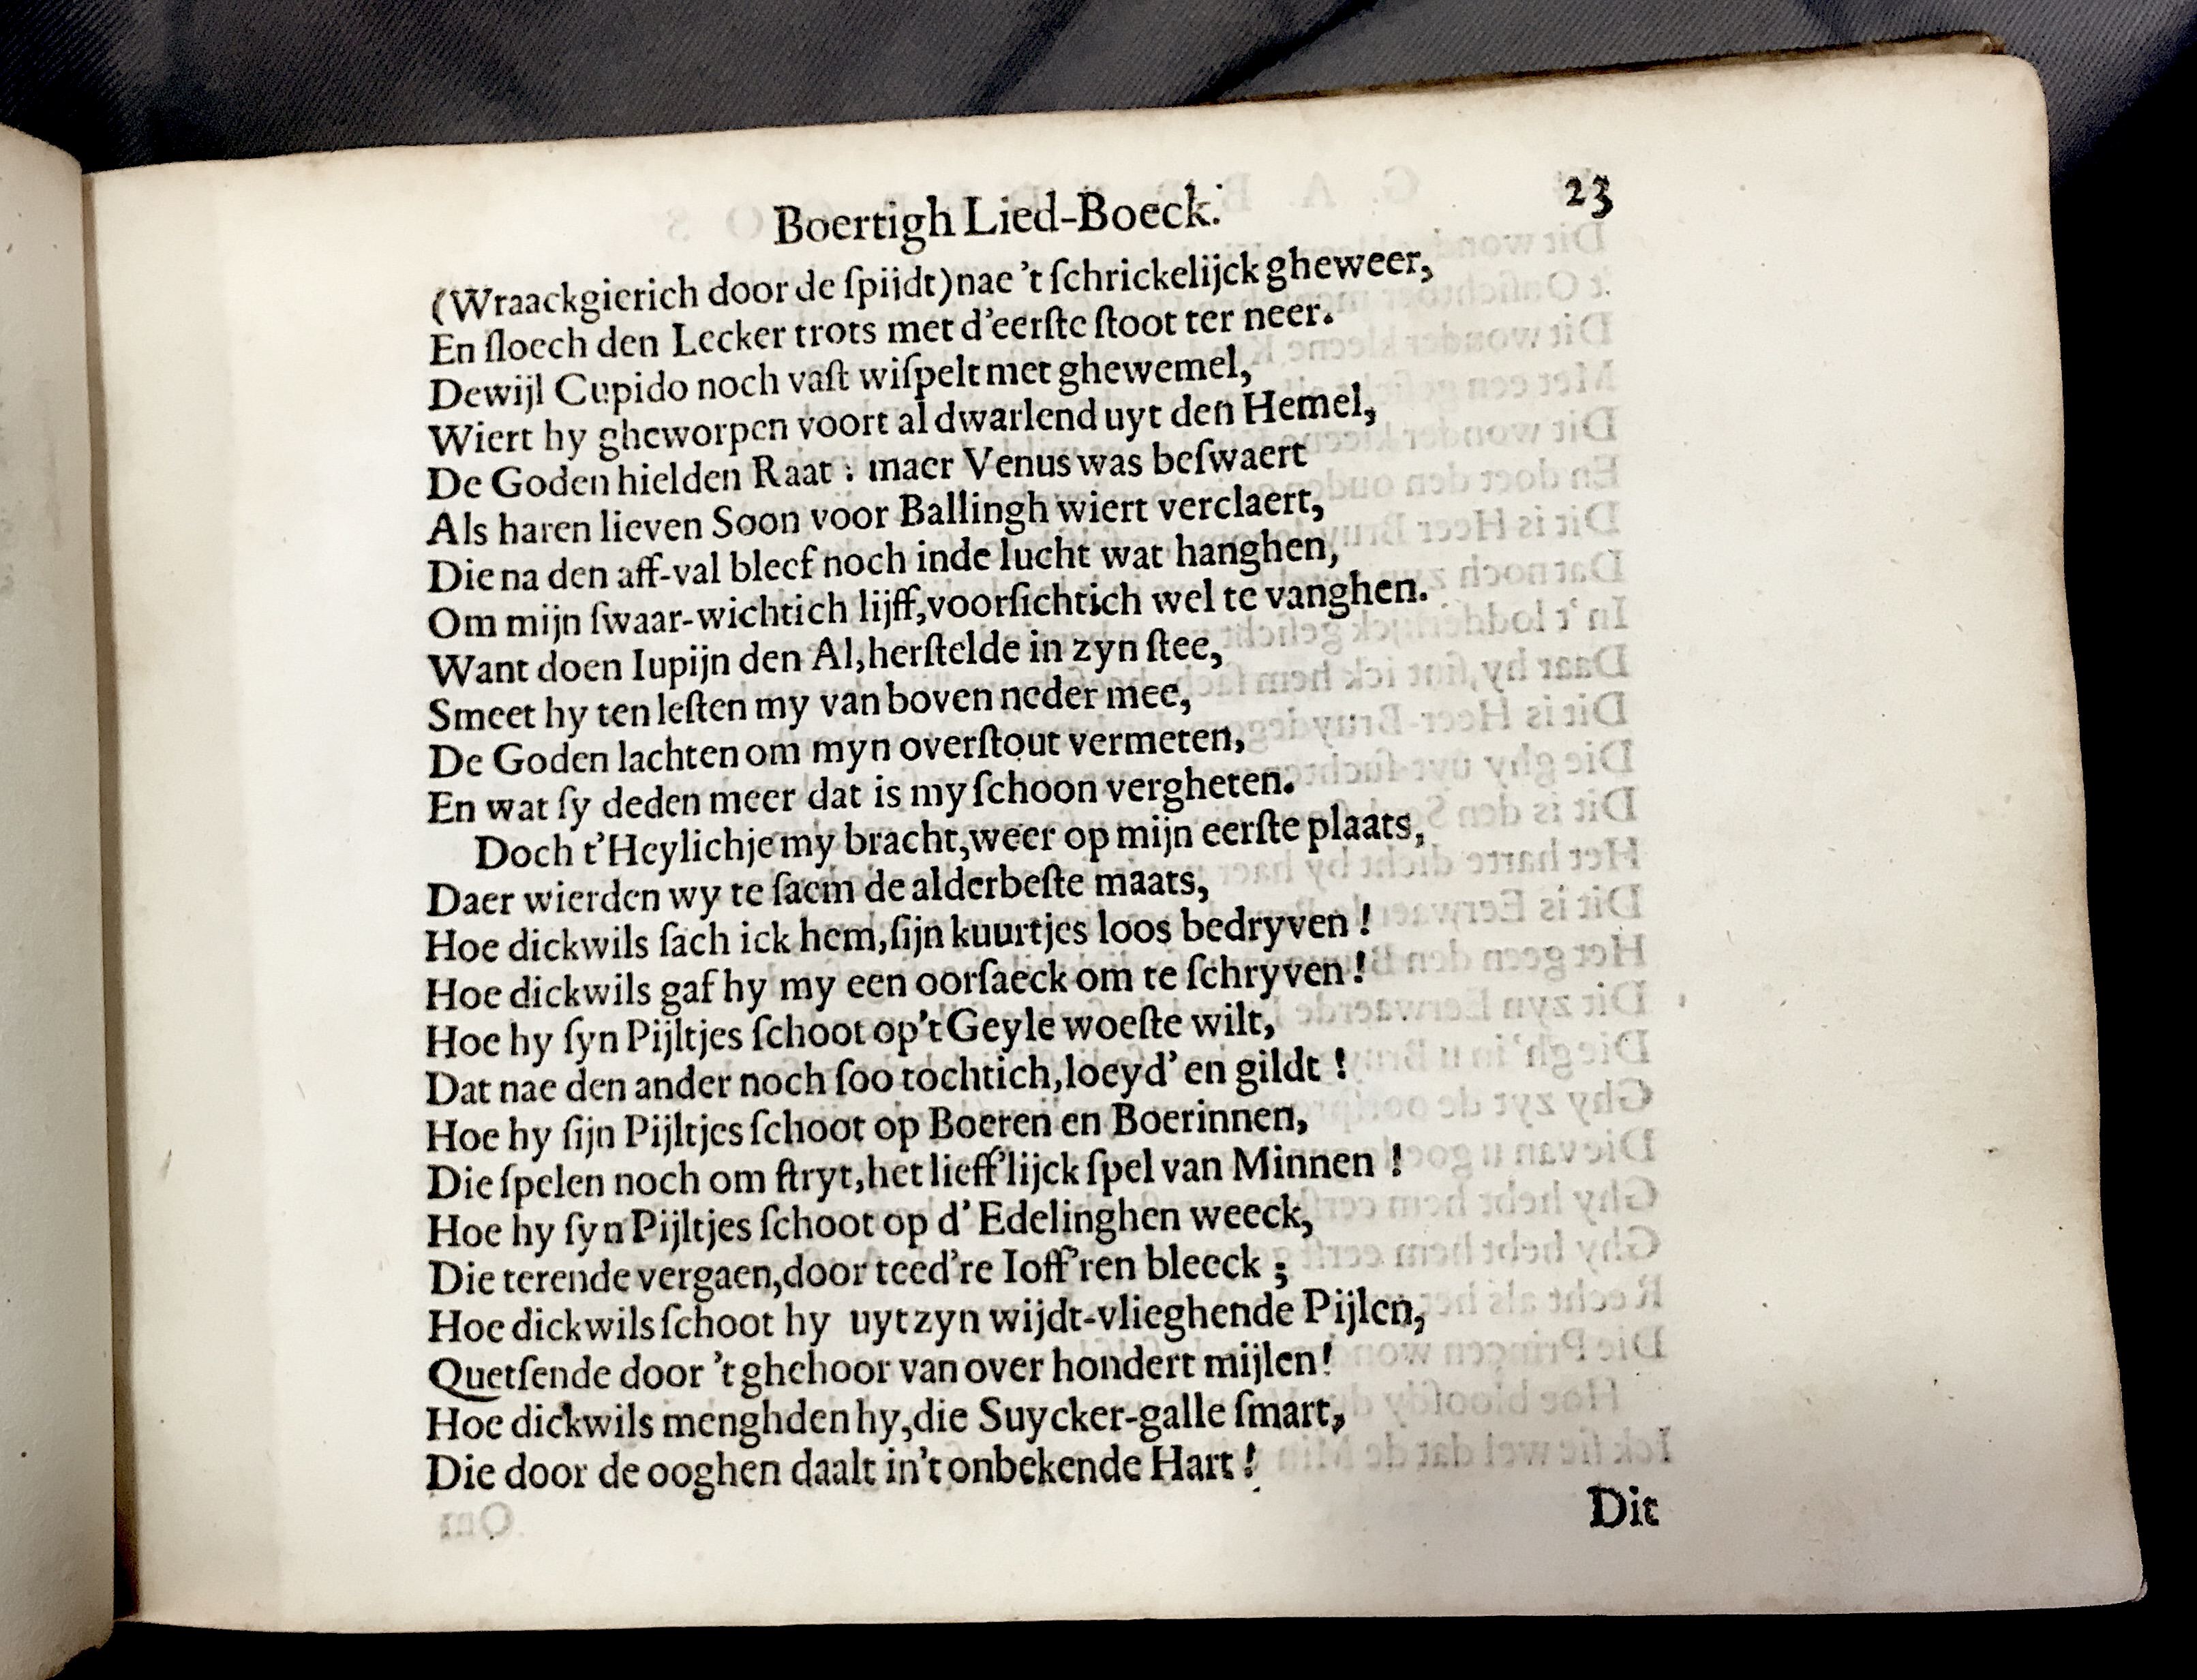 Boertigh Lied-Boeck. 23
(Wraackgierich door de ſpijdt) nae 't ſchrickelijck gheweer,
En ſloech den Lecker trots met d'eerſte ſtoot ter neer.
Dewijl Cupido noch vaſt wiſpelt met ghewemel,
Wiert hy gheworpen voort al dwarlend uyt den Hemel,
De Goden hielden Raat : maer Venus was beſwaert
Als haren lieven Soon voor Ballingh wiert verclaert,
Die na den aff-val bleef noch inde lucht wat hanghen,
Om mijn ſwaar-wichtich lijff, voorſichtich wel te vanghen.
Want doen Iupijn den Al, herſtelde in zyn ſtee,
Smeet hy ten leſten my van boven neder mee,
De Goden lachten om myn overſtout vermeten,
En wat ſy deden meer dat is my ſchoon vergheten.
Doch t'Heylichje my bracht, weer op mijn eerſte plaats,
Daer wierden wy te ſaem de alderbeſte maats,
Hoe dickwils ſach ick hem, ſijn kuurtjes loos bedryven !
Hoe dickwils gaf hy my een oorſaeck om te ſchryven !
Hoe hy ſyn Pijltjes ſchoot op't Geyle woeſte wilt,
Dat nae den ander noch ſoo tochtich, loeyd' en gildt !
Hoe hy ſijn Pijltjes ſchoot op Boeren en Boerinnen,
Die ſpelen noch om ſtryt, het lieff'lijck ſpel van Minnen !
Hoe hy ſyn Pijltjes ſchoot op d' Edelinghen weeck,
Die terende vergaen, door teed're Ioff'ren bleeck ;
Hoe dickwils ſchoot hy uyt zyn wijdt-vlieghende Pijlen,
Quetſende door 't ghehoor van over hondert mijlen!
Hoe dickwils menghden hy, die Suycker-galle ſmart,
Die door de ooghen daalt in't onbekende Hart !
Dit